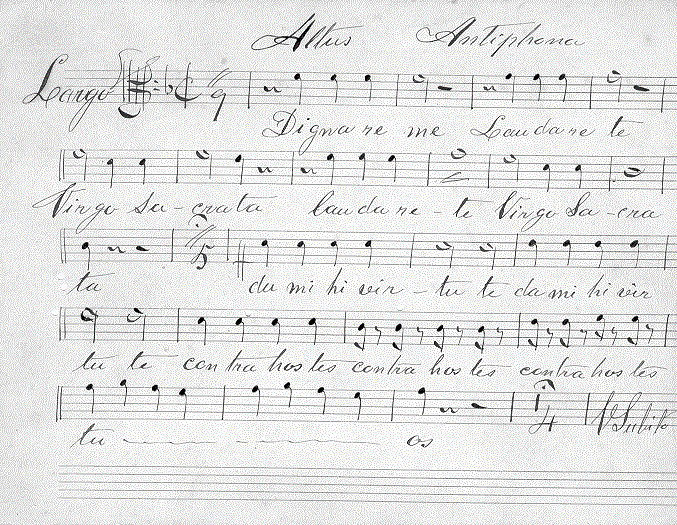 Altus Antiphona
Largo 9
Dignare me Laudare te
Virgo Sa-crata laudare-te Virgo Sa-cra
5
ta da mihi vir-tu te da mihi vir
tu te contra hostes contra hostes contra hostes
4 V Subito
tu os